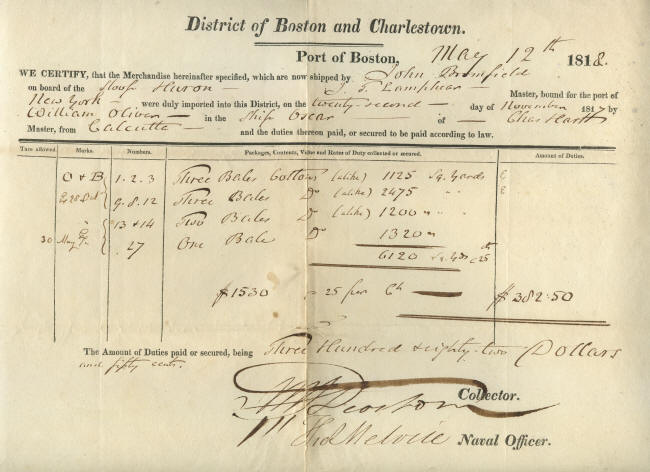 District of Boston and Charlestown.
Port of Boston, May 12th 1818.
WE CERTIFY, that the Merchandise hereinafter specified, which are now shipped by John Bromfield
on board of the Sloop Huron — Master, bound for the port of
New York — were duly imported into this District, on the twenty-second — day of November 1817 by
William Oliver — in the Ship Oscar of —
Master, from Calcutta — and the duties thereon paid, or secured to be paid according to law.
Tare allowed. Marks. Numbers. Packages, Contents, Value and Rates of Duty collected or secured. Amount of Duties.
O & B 1. 2. 3 Three Bales Cottons (alike) 1125 Sq. Yards
9. 8. 12 Three Bales Do (alike) 2475 " "
13 & 14 Two Bales Do (alike) 1200 " "
30 27 One Bale Do 1320 "
6120 Sq. Yds c25
$1530 25 per Ct — $382.50
The Amount of Duties paid or secured, being Three Hundred & eighty-two Dollars
and fifty cents.
Collector.
Thos Melvill Naval Officer.